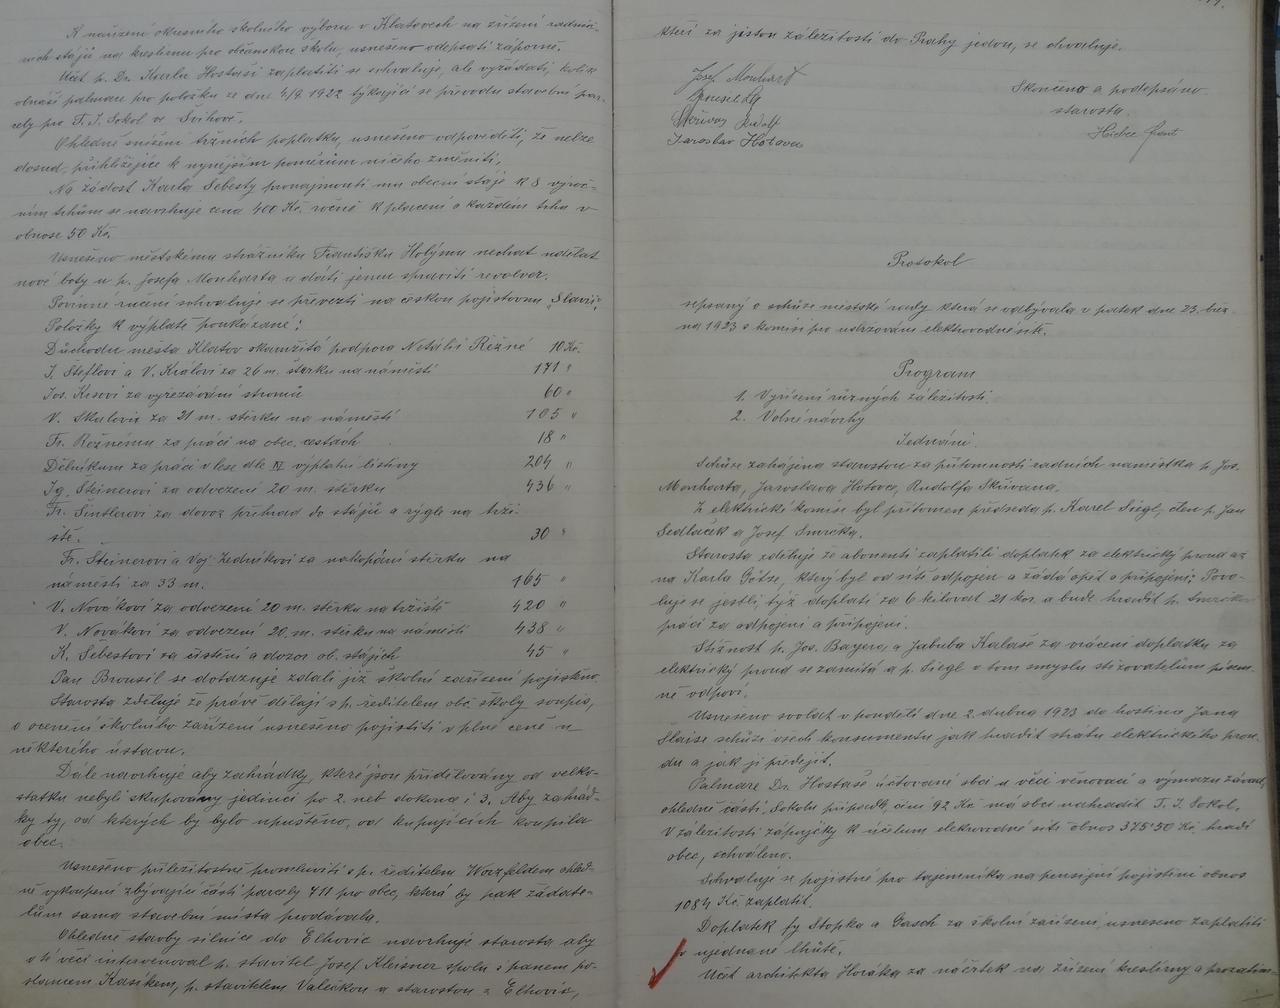 K nařízení okresního školního výboru v Klatovech na zřízení radnič-
ních stájí na kreslírnu pro občanskou školu, usneseno odepsati záporně.
Účet p. Dr. Karlu Hostaši zaplatiti se schvaluje, ale vyžádati, kolik
obnáší palmare pro položku ze dne 4/9 1922 týkající se převodu stavební par-
cely pro T. J. Sokol ve Švihově.
Ohledně snížení tržních poplatků, usneseno odpověděti, že nelze
dosud, přihlížejíce k nynějším poměrům ničeho změniti.
Na žádost Karla Šebesty pronajmouti mu obecní stáje k 8 výroč-
ním trhům se navrhuje cena 400 Kč. ročně k placení o každém trhu v
obnose 50 Kč.
Usneseno městskému strážníku Františku Holýmu nechat udělat
nové boty u p. Josefa Monharta a dáti jemu spraviti revolver.
Povinné ručení schvaluje se převézti na českou pojistovnu "Slavii".
Položky k výplatě poukázané:
Důchodu města Klatov okamžitá podpora Natálii Režné 10 Kč.
J. Šteflovi a V. Královi za 26 m. štěrku na náměstí 171 "
Jos. Krsovi za vyřezávání stromů 60 "
V. Skalovi za 21 m. štěrku na náměstí 105 "
Fr. Režnému za práci na obec. cestách 18 "
Dělníkům za práci v lese dle IV výplatní listiny 204 "
Ig. Steinerovi za odvezení 20 m. štěrku 436 "
Fr. Šintlerovi za dovoz přehrad do stájů a rýgle na trži
ště. 30 "
Fr. Steinerovi a Voj. Zedníkovi za nakopání štěrku na
náměstí za 33 m. 165 "
V. Novákovi za odvezení 20 m. štěrku na tržiště 420 "
V. Novákovi za odvezení 20. m. štěrku na náměstí 438 "
K. Šebestovi za čistění a dozor ob. stájích 45 "
Pan Brousil se dotazuje zdali již školní zařízení pojištěno.
Starosta zděluje že právě dělají s p. ředitelem obč. školy soupis,
a ocenění školního zařízení usneseno pojistiti v plné ceně u
některého ústavu.
Dále navrhuje aby zahrádky, které jsou přidělovány od velko-
statku nebyli skupovány jedinci po 2. neb dokonce i 3. Aby zahrád-
ky ty, od kterých by bylo upuštěno, od kupujících koupila
obec.
Usneseno příležitostně promluviti s p. ředitelem Worzfeldem ohled-
ně vykoupení zbývající části parcely 411 pro obec, která by pak žádate-
lům sama stavební místa prodávala.
Ohledně stavby silnice do Elhovic navrhuje starosta aby
o té věci intervenoval p. stavitel Josef Kleisner spolu s panem po-
slancem Kasíkem, p. stavitelem Valešákem a starostou z Elhovic,
kteří za jistou záležitostí do Prahy jedou, se schvaluje.
Josef Monhart
Brousil
Skřivan Rudolf
Jaroslav Hotovec
Skončeno a podepsáno
starosta
Protokol
sepsaný o schůzi městské rady která se odbývala v pátek dne 23. břez-
na 1923 s komisí pro udržování elektrovodné sítě.
Program
1. Vyřízení různých záležitostí.
2. Volné návrhy
Jednání.
Schůze zahájena starostou za přítomnosti radních náměstka p. Jos.
Monharta, Jaroslava Hotovce, Rudolfa Skřivana.
Z elektrické komise byl přítomen předseda p. Karel Siegl, člen p. Jan
Sedláček a Josef Smrčka.
Starosta zděluje že abonenti zaplatili doplatek za elektrický proud až
na Karla Götze, který byl od sítě odpojen a žádá opět o připojení: Povo-
luje se jestli týž doplatí za 6 kilovat 21 kor. a bude hradit p. Smrčkovi
práci za odpojení a připojení.
Stížnost p. Jos. Bayera a Jakuba Kalaše za vrácení doplatku za
elektrický proud se zamítá a p. Siegl v tom smyslu stěžovatelům písem-
ně odpoví.
Usneseno svolat v pondělí dne 2. dubna 1923 do hostince Jana
Slaise schůzi všech konsumentů jak hradit ztrátu elektrického prou-
du a jak jí předejít.
Palmare Dr. Hostaše účtované obci u věci věnovací a výmazu závad,
ohledně části, Sokolu připadlé, činí 92 Kč má obci nahradit T. J. Sokol.
V záležitosti zápůjčky k účelům elekrovodné sítě obnos 375·50 Kč, hradí
obec, schváleno.
Schvaluje se pojistné pro tajemníka na pensijní pojištění obnos
1084 Kč. zaplatit.
Doplatek fy Stopka a Gasch za školní zařízení, usneseno zaplatiti
v ujednané lhůtě.
Účet architekta Horáka za náčrtek na zřízení kreslírny a prozatím-